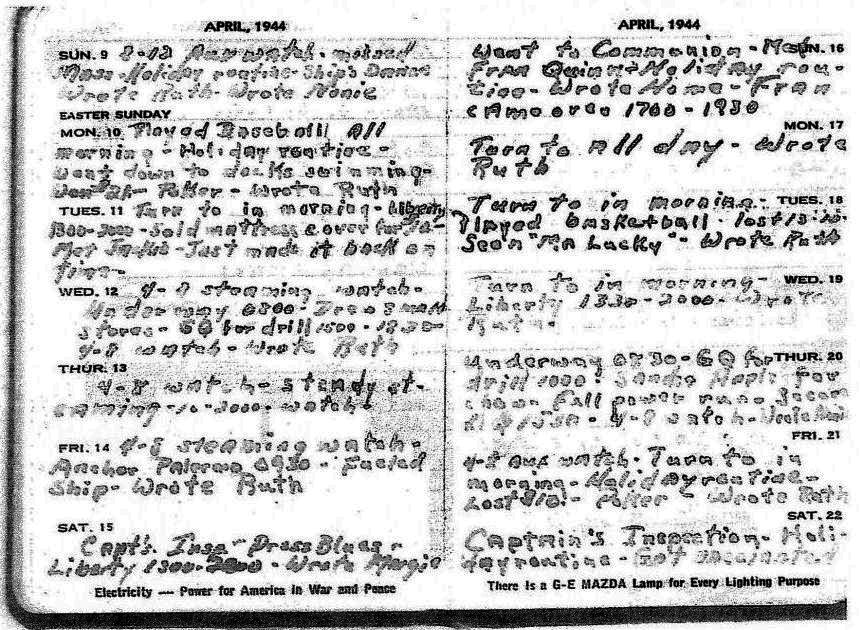 APRIL, 1944
SUN. 9 8-12 Aux watch - missed
Mass - Holiday routine - Ship's Dance
Wrote Ruth - Wrote Nonie
EASTER SUNDAY
MON. 10 Played Baseball All
morning - Holiday routine -
Went down to docks swimming -
Won - Poker - Wrote Ruth
TUES. 11 Turn to in morning - Liberty
1300-2000 - Sold mattress cover for
Met - Just made it back on
time -
WED. 12 4-8 steaming watch -
Underway 0800 -
stores - GQ for drill 1500 -
4-8 watch - Wrote Ruth
THUR. 13
4-8 watch - steady st-
eaming - watch -
FRI. 14 4-8 steaming watch -
Anchor Palermo 0930 - Fueled
Ship - Wrote Ruth
SAT. 15
Capt's. Insp - Dress Blues -
Liberty 1300-2200 - Wrote Margie
Electricity — Power for America in War and Peace
APRIL, 1944
Went to Communion - Met SUN. 16
Fran Quinn - Holiday rou-
tine - Wrote Home - Fran
came over 1700 - 1930
MON. 17
Turn to all day - Wrote
Ruth
Turn to in morning - TUES. 18
Played basketball - lost
Seen "Mr Lucky" - Wrote Ruth
Turn to in morning - WED. 19
Liberty 1330 - 2000 - Wrote
Ruth -
Underway 0730 - GQ for THUR. 20
drill 1000 - Naples for
chow - Full power run -
4-8 watch -
FRI. 21
4-8 Aux watch - Turn to in
morning - Holiday routine -
Lost - Poker - Wrote Ruth
SAT. 22
Captain's Inspection - Holi-
day routine - Got vaccinated
There Is a G-E MAZDA Lamp for Every Lighting Purpose